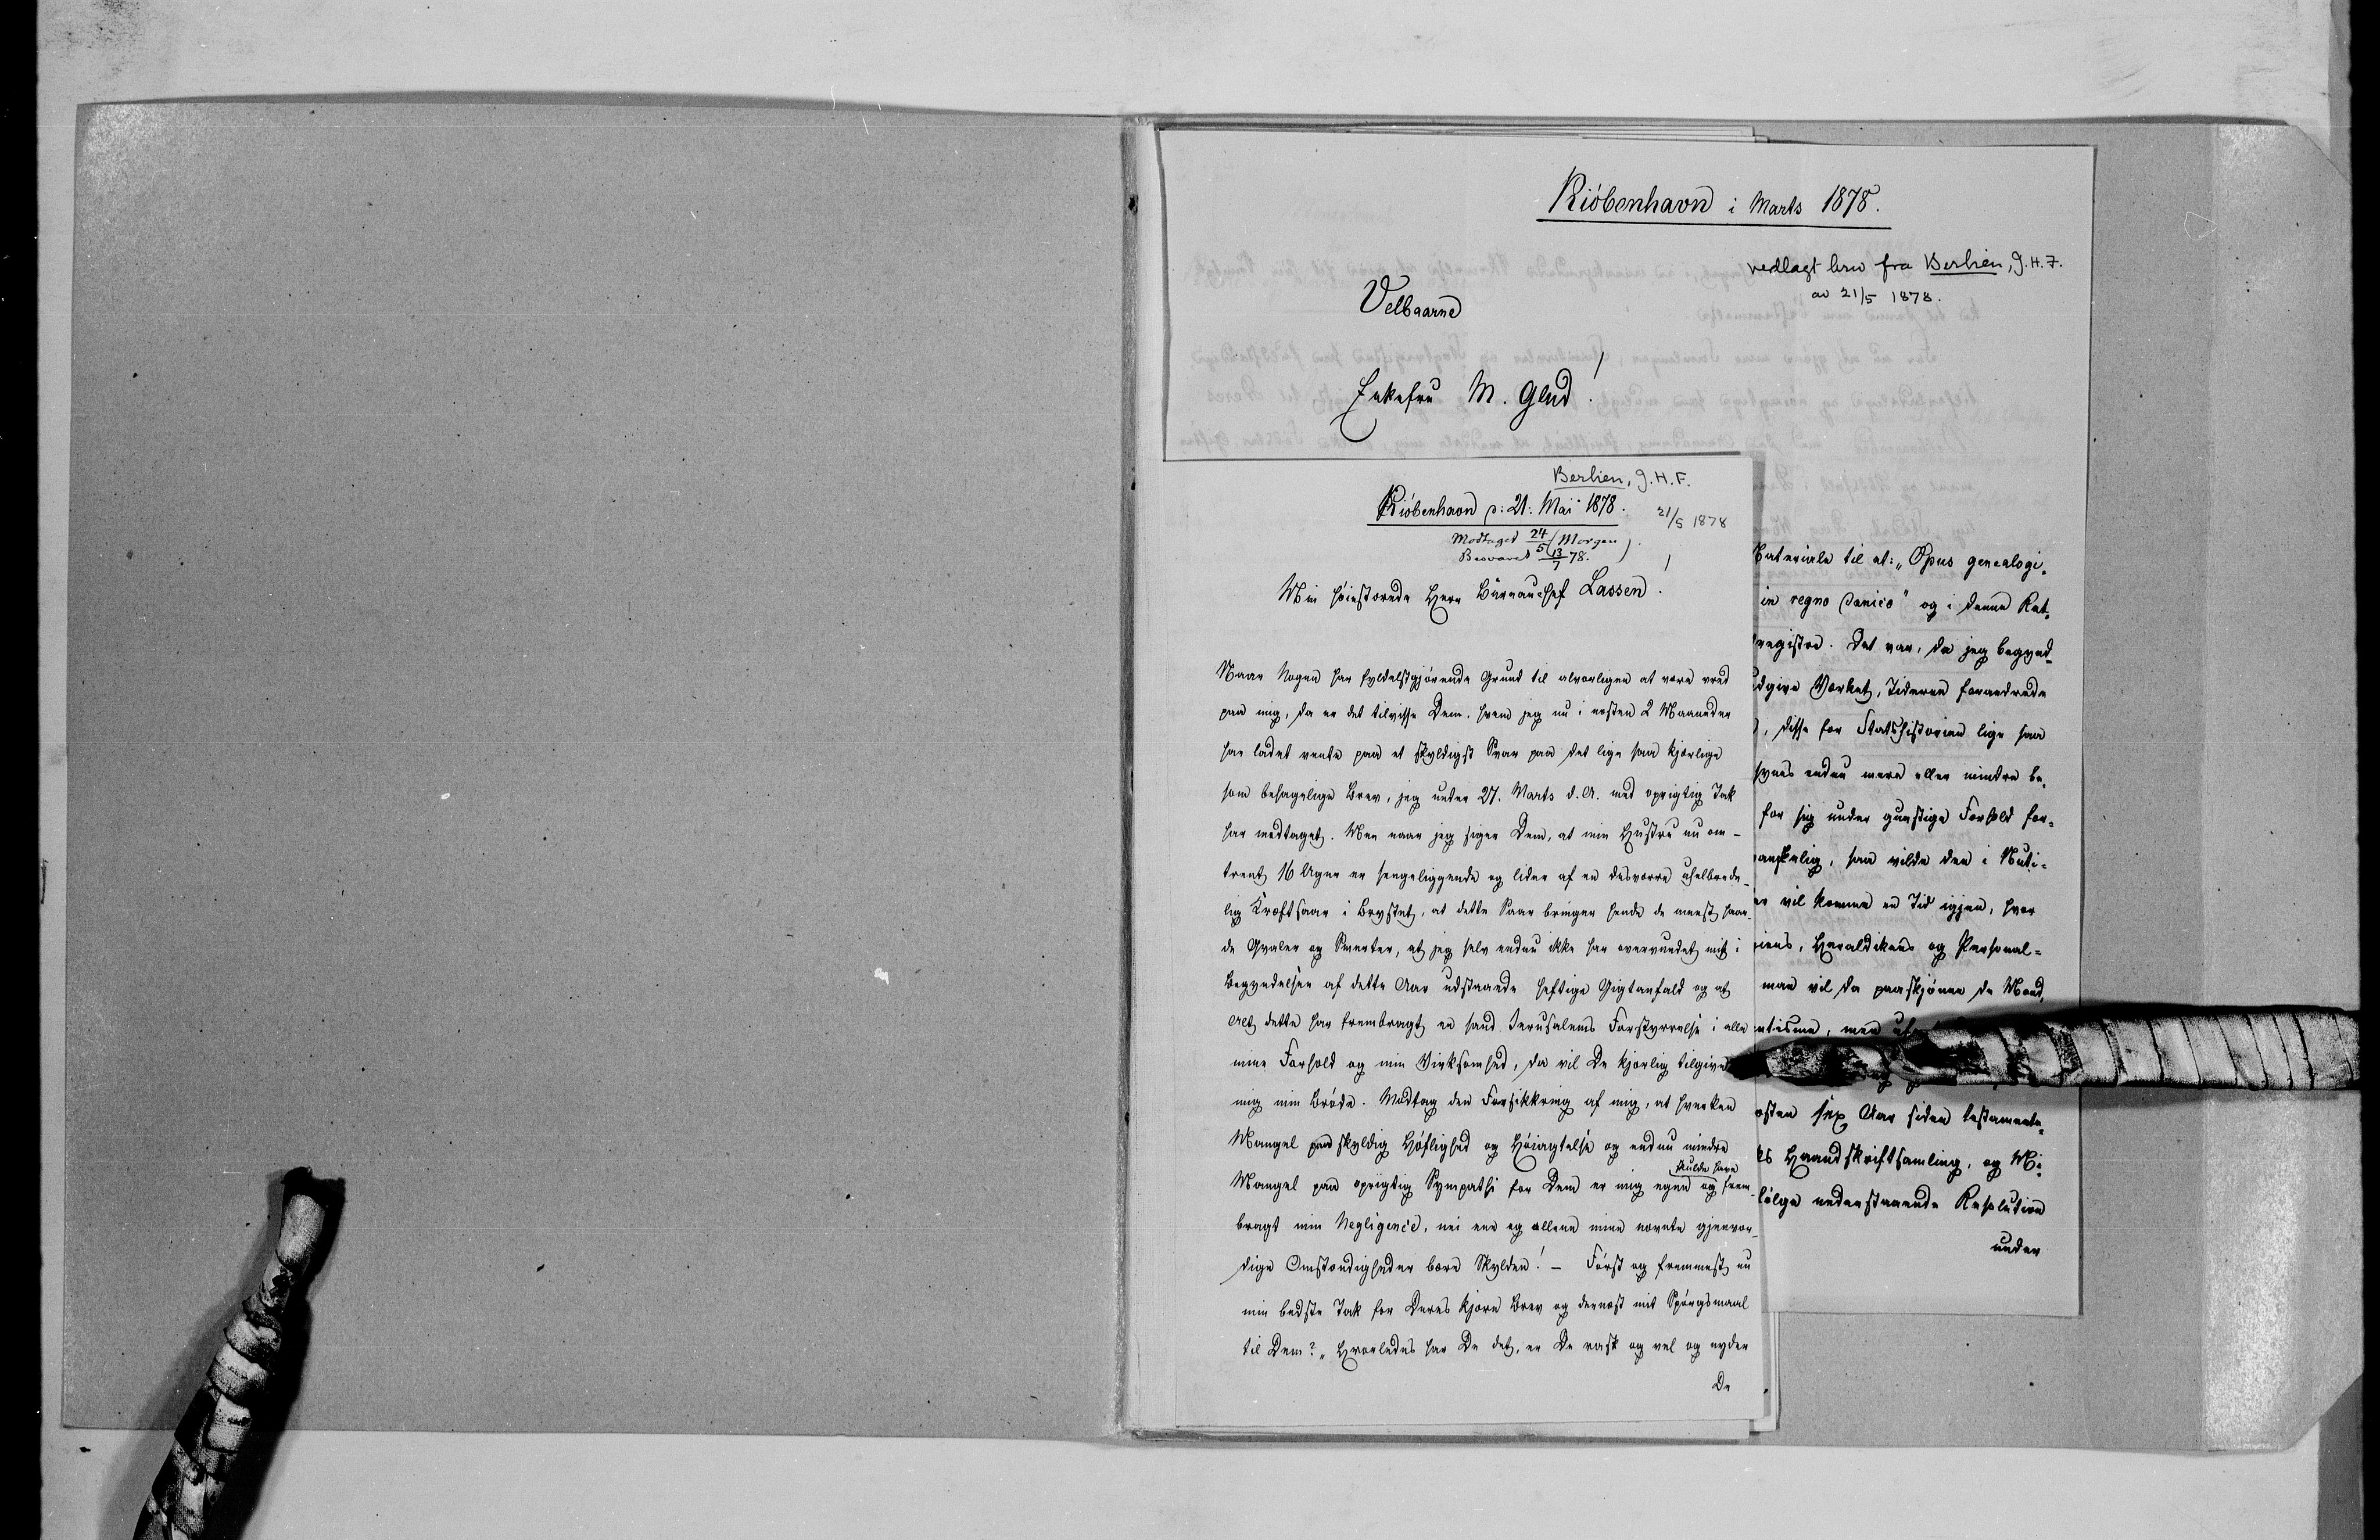 Kiöbenhavn i Marts 1878.
vedlagt brev fra Berlien, J.H.F.
av 21/5 1878.
Velbaarne
Enkefru M. Glud!
Berlien, J.H.F.
Kiöbenhavn d: 21: Mai 1878.
21/5 1878
Modtaget 24/5 (Morgen)
Besvaret 13/7 78.
Min høistærede Herr Büreauchef Lassen!
Naar Nogen har fyldestgjørende Grund til alvorligen at være vred
paa mig, da er det tilvisse Dem, hvem jeg nu i næsten 2 Maaneder
har ladet vente paa et skyldigst Svar paa det lige saa kjærlige
som behagelige Brev, jeg under 27. Marts d. A. med oprigtig Tak
har modtaget. Men naar jeg siger Dem, at min Hustru nu om-
trent 16 Uger er sengeliggende og lider af en desværre uhelbrede-
lig Kræftsaar i Brystet, at dette Saar bringer hende de meest haar-
de Qvaler og Smerter, at jeg selv endnu ikke har overvundet mit i
Begyndelsen af dette Aar udstaaede heftige Gigtanfald og at
Alt dette har frembragt en sand Jerusalems Forstyrrelse i alle
mine Forhold og min Virksomhed, da vil De kjærlig tilgive
mig min Brøde. Modtag den Forsikkring af mig, at hverken
Mangel paa skyldig Høflighed og Høiagtelse og endnu mindre
Mangel paa oprigtig Sympathi for Dem er mig egen og skulde have frem-
bragt min Negligence, nei ene og allene mine nævnte gjenvor-
dige Omstændigheder bære Skylden! — Først og fremmest nu
min bedste Tak for Deres kjære Brev og dernæst mit Spørgsmaal
til Dem? „Hvorledes har De det, er De rask og vel og nyder
De
Materiale til at: „Opus genealogi-
in regno danico" og i denne Ret-
register. Det var, da jeg begynd-
udgive Værket, Tiderne forandrede
, disse for Statshistorien lige saa
synes endnu mere eller mindre be-
for sig under gunstige Forhold for-
vanskelig, saa vilde den i Nuti-
er vil komme en Tid igjen, hvor
giens, Heraldikens og Personal-
man vil da paaskjønne de Mænd,
ntisme, men
næsten sex Aar siden testamente-
ks Haandskriftsamling, og Mi-
følge nedenstaaende Resolution
under